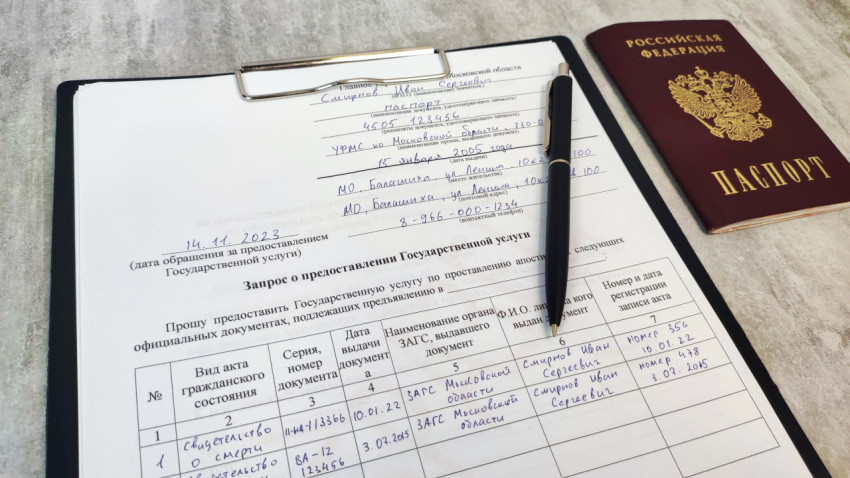 Московской области
Смирнов Иван Сергеевич
(Ф.И.О. (наименование) заявителя)
паспорт
(наименование документа, удостоверяющего личность)
4505 123456
(реквизиты документа, удостоверяющего личность)
УФМС по Московской области
(наименование органа, выдавшего документ)
15 января 2005 года
(дата выдачи)
МО, Балашиха, ул Ленина, 100
(место жительства)
МО, Балашиха, ул Ленина, 100
(почтовый адрес)
8-966-000-1234
(контактный телефон)
14.11.2023
(дата обращения за предоставлением
Государственной услуги)
Запрос о предоставлении Государственной услуги
Прошу предоставить Государственную услугу по проставлению следующих
официальных документах, подлежащих предъявлению в
№
Вид акта
гражданского
состояния
Серия,
номер
документа
Дата
выдачи
документ
а
Наименование органа
ЗАГС, выдавшего
документ
Ф.И.О. кого
выдан документ
Номер и дата
регистрации
записи акта
1 2 3 4 5 6 7
1 Свидетельство
о смерти
10.01.22
ЗАГС Московской
области
Смирнов Иван
Сергеевич
номер 356
10.01.22
ВА-12
123456
3.07.2015
ЗАГС Московской
области
Смирнов Иван
Сергеевич
номер 478
3.07.2015
РОССИЙСКАЯ
ФЕДЕРАЦИЯ
ПАСПОРТ